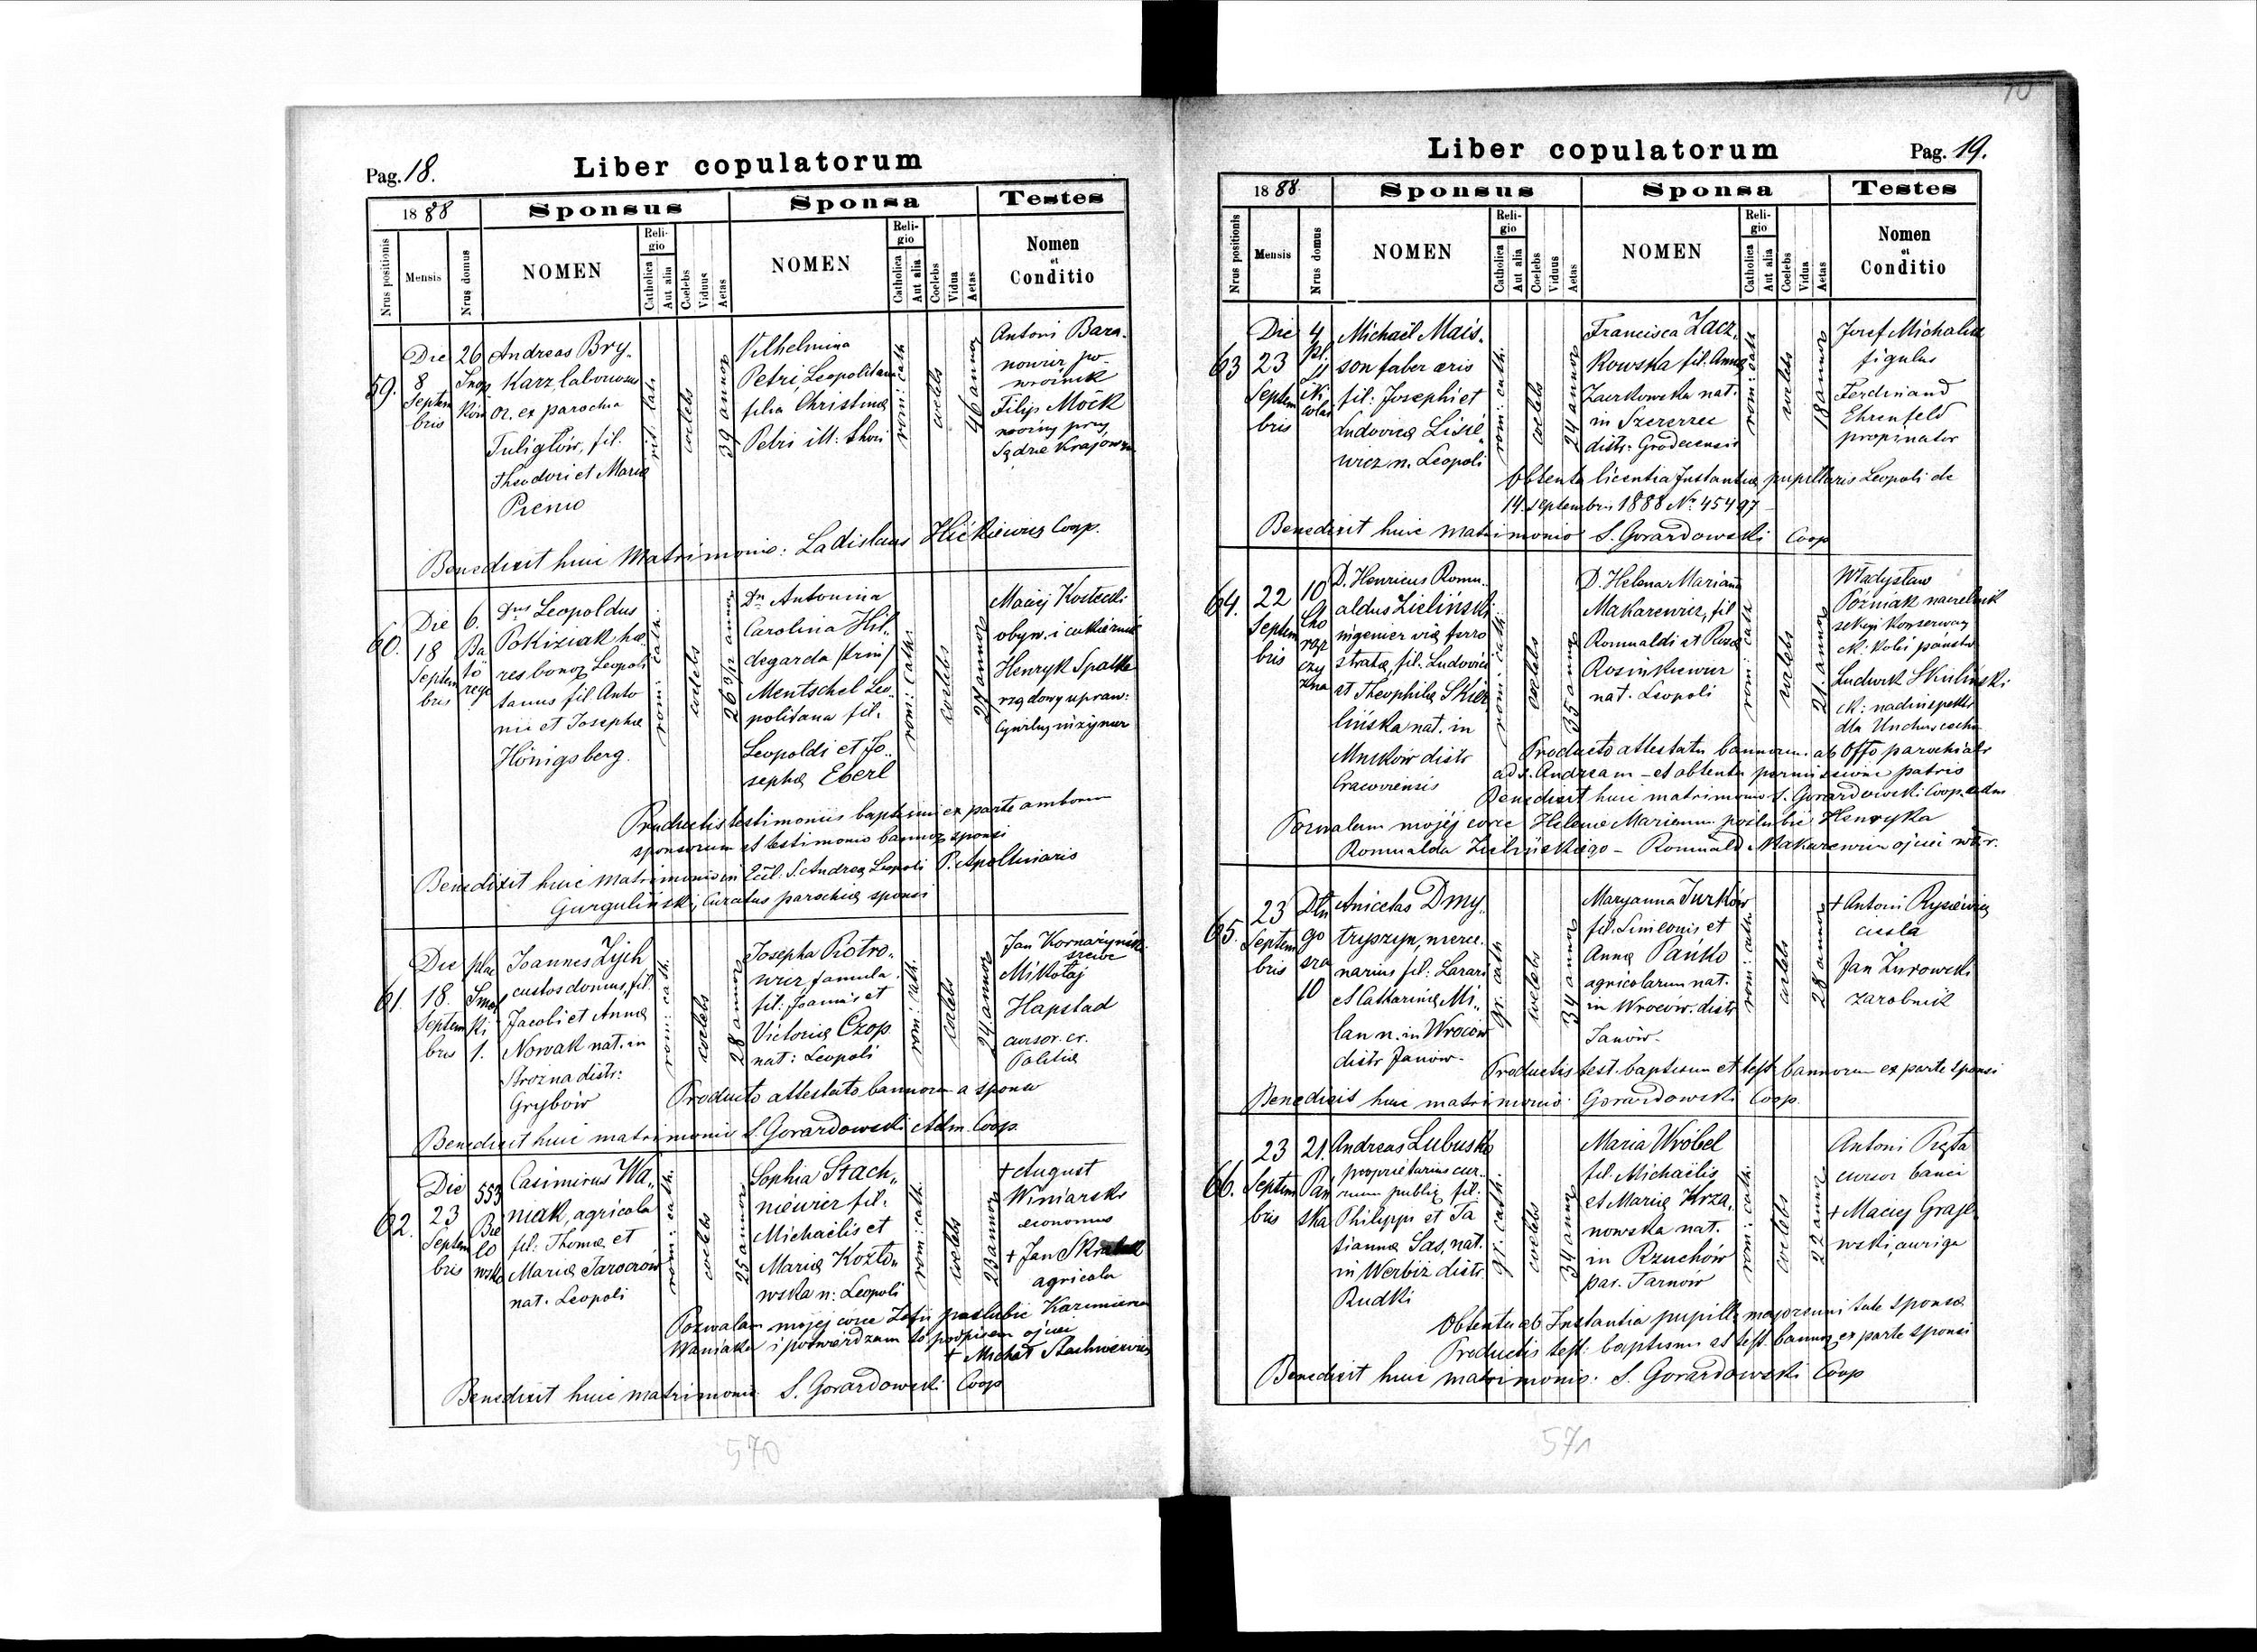 10
Pag. 18.
Liber copulatorum
1888
Sponsus
Sponsa
Testes
Nrus positionis
Mensis
Nrus domus
NOMEN
Religio
Catholica
Aut alia
Coelebs
Viduus
Aetas
NOMEN
Religio
Catholica
Aut alia
Coelebs
Vidua
Aetas
Nomen
et
Conditio
59.
Die
8
Septem
bris
26
Andreas Bry„
Karz, laboriosus
or. ex parochia
Tuligłów, fil.
Theodori et Mariæ
Pienio
rit. lat.
coelebs
39 annor
Vilhelmina
Petri, Leopolitana
filia Christinæ
Petri
rom: cath
coelebs
46 annor
Antoni Bara„
nowicz po„
wroźnik
Filip Möck
woźny przy
Sądzie Krajowym
Benedixit huic Matrimonio: Ladislaus Hićkiewicz Coop.
60.
Die
18
Septem
bris
6.
Ba
to
rego
Dnus Leopoldus
Pokiziak hæ„
res bonor Leopoli
tanus fil Anto
nii et Josephæ
Hönigsberg.
rom: cath.
coelebs
26 3/12 annor
Dn Antonina
Carolina Hil„
degarda /trin/
Mentschel Leo„
politana fil.
Leopoldi et Jo„
sephæ Eberl
rom: cath.
coelebs
annor
Maciej Kostecki
obyw. i cukiernik
Henryk Spalke
rządowy upraw:
Cywilny inżynier
Productis testimoniis baptismi ex parte amborum
sponsorum et testimonio bannor sponsi
Benedixit huic Matrimonio in Eccl: S. Andreæ Leopoli P. Apollinaris
Gurguliński, Curatus parochiæ sponsi
61.
Die
18.
Septem
bris
plac
Smol
ki
1.
Joannes Zych
custos domus, fil.
Jacobi et Annæ
Nowak nat. in
Stroźna distr:
Grybów
rom: cath.
coelebs
28 annor
Josepha Piotro„
wicz famula
fil: Joannis et
Victoriæ Czop
nat: Leopoli
rom: cath.
coelebs
24 annor
Jan
Mikołaj
Hapstad
cursor. cr.
Politiæ
Producto attestato bannorum a sponso
Benedixit huic matrimonio S. Gorazdowski Adm. Coop.
62.
Die
23
Septem
bris
553
Casimirus Wa„
niak, agricola
fil: Thomæ et
Mariæ
nat. Leopoli
rom: cath.
coelebs
25 annor
Sophia Stach„
niewicz fil.
Michaëlis et
Mariæ Kozło„
wska n: Leopoli
rom: cath.
coelebs
23 annor
+ August
Winiarski
economus
+ Jan
agricola
Pozwalam mojej córce Zofii poślubić Kazimierza
Waniaka i potwierdzam to podpisem ojciec
+ Michał Stachniewicz
Benedixit huic matrimonio S. Gorazdowski Coop
570
Liber copulatorum
Pag. 19.
1888
Sponsus
Sponsa
Testes
Nrus positionis
Mensis
Nrus domus
NOMEN
Religio
Catholica
Aut alia
Coelebs
Viduus
Aetas
NOMEN
Religio
Catholica
Aut alia
Coelebs
Vidua
Aetas
Nomen
et
Conditio
63
Die
23
Septem
bris
4
pl.
Michaël Mais„
son faber æris
fil: Josephi et
Ludovicæ Lisie„
wicz n. Leopoli
rom: cath.
coelebs
24 annor
Francisca Zacz„
kowska fil. Annæ
Zaczkowska nat.
in Szczerzec
distr: Grodecensis
rom: cath
coelebs
18 annor
Josef Michalik
figulus
Ferdinand
Ehrenfeld
propinator
Obtenta licentia Instantiæ pupillaris Leopoli de
14. septembris 1888 Nr. 45497
Benedixit huic matrimonio S. Gorazdowski Coop
64.
22
Septem
bris
10
Cho
rąż
czy
zna
D. Henricus Romu„
aldus Zieliński
ingenier viæ ferro
stratæ, fil. Ludovici
et Theophilæ Skier„
lińska nat. in
distr
Cracoviensis
rom: cath.
coelebs
35 annor
D. Helena Marianna
Makarewicz, fil
Romualdi et Rosæ
Rosinkiewicz
nat. Leopoli
rom: cath
coelebs
21. annor
Władysław
Poźniak naczelnik
sekcyi Konserwacyi
ck. kolei państw
Ludwik Skuliński
ck: nadinspektor
dla
Producto attestatu bannorum ab Offo parochiali
ad S. Andream – et obtenta permissione patris
Benedixit huic matrimonio S. Gorazdowski Coop. adm
Pozwalam mojéj córce Helenie Mariannie poślubić Henryka
Romualda Zielińskiego – Romuald Makarewicz ojciec włr.
65.
23
Septem
bris
Dłu
go
sza
10
Anicetas Dmy„
tryszyn, merce„
narius fil: Lazari
et Catharinæ Mi„
lan n. in Wroców
distr Janów.
gr. cath
coelebs
34 annor
Maryanna Turków
fil. Simeonis et
Annæ Pańko
agricolarum nat.
in Wroców. distr
Janów.
rom: cath
coelebs
28 annor
+ Antoni Rysiewicz
cieśla
Jan Żurowski
zarobnik
Productis test. baptismi et test bannorum ex parte sponsi
Benedixit huic matrimonio Gorazdowski Coop.
66.
23
Septem
bris
21.
Pań
ska
Andreas Lubusko
proprietarius cur„
rum public fil:
Philippi et Ta
tiannæ Sas, nat.
in Werbiż distr.
Rudki
gr. cath.
coelebs
34 annor
Maria Wróbel
fil. Michaëlis
et Mariæ Krza„
nowska nat.
in Rzuchów
par. Tarnów
rom: cath.
coelebs
22 annor
Antoni Pręta
cursor banci
+ Maciej Graje„
wski auriga
Obtentu ab Instantia pupill. majorenni tate sponsæ
Productis test: baptismi et test. bannor ex parte sponsi
Benedixit huic matrimonio: S. Gorazdowski Coop
571